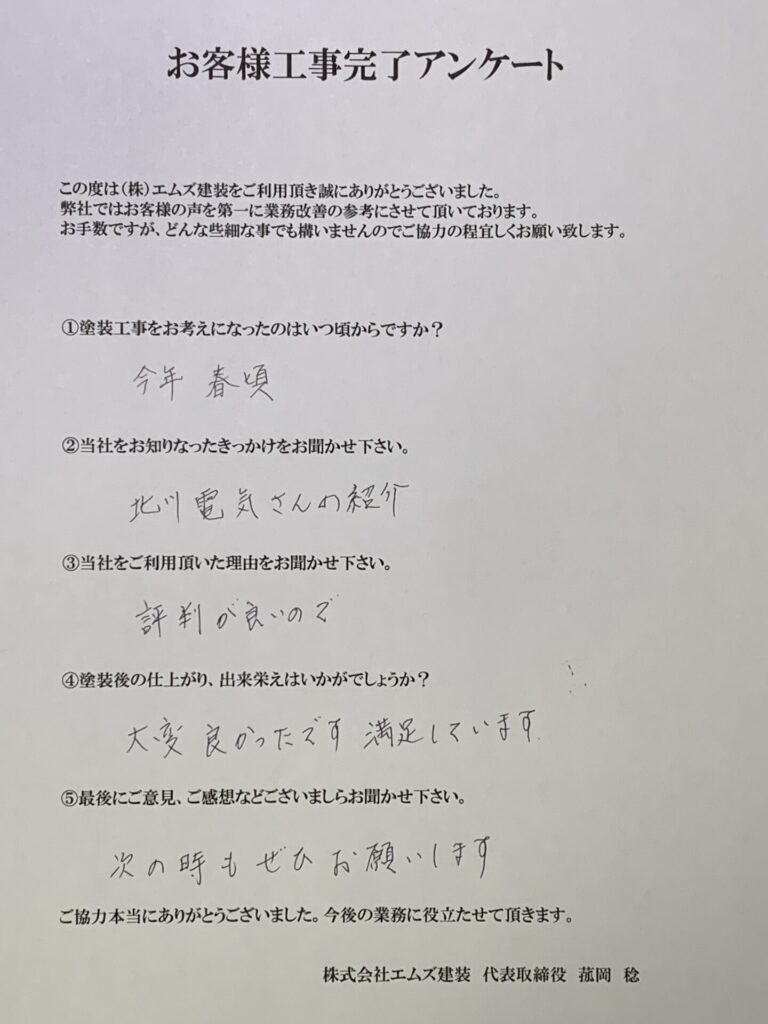 お客様工事完了アンケート
この度は（株）エムズ建装をご利用頂き誠にありがとうございました。
弊社ではお客様の声を第一に業務改善の参考にさせて頂いております。
お手数ですが、どんな些細な事でも構いませんのでご協力の程宜しくお願い致します。
①塗装工事をお考えになったのはいつ頃からですか？
今年 春頃
②当社をお知りなったきっかけをお聞かせ下さい。
北川電気さんの紹介
③当社をご利用頂いた理由をお聞かせ下さい。
評判が良いので
④塗装後の仕上がり、出来栄えはいかがでしょうか？
大変良かったです 満足しています。
⑤最後にご意見、ご感想などございましらお聞かせ下さい。
次の時もぜひお願いします
ご協力本当にありがとうございました。今後の業務に役立たせて頂きます。
株式会社エムズ建装 代表取締役 菰岡 稔